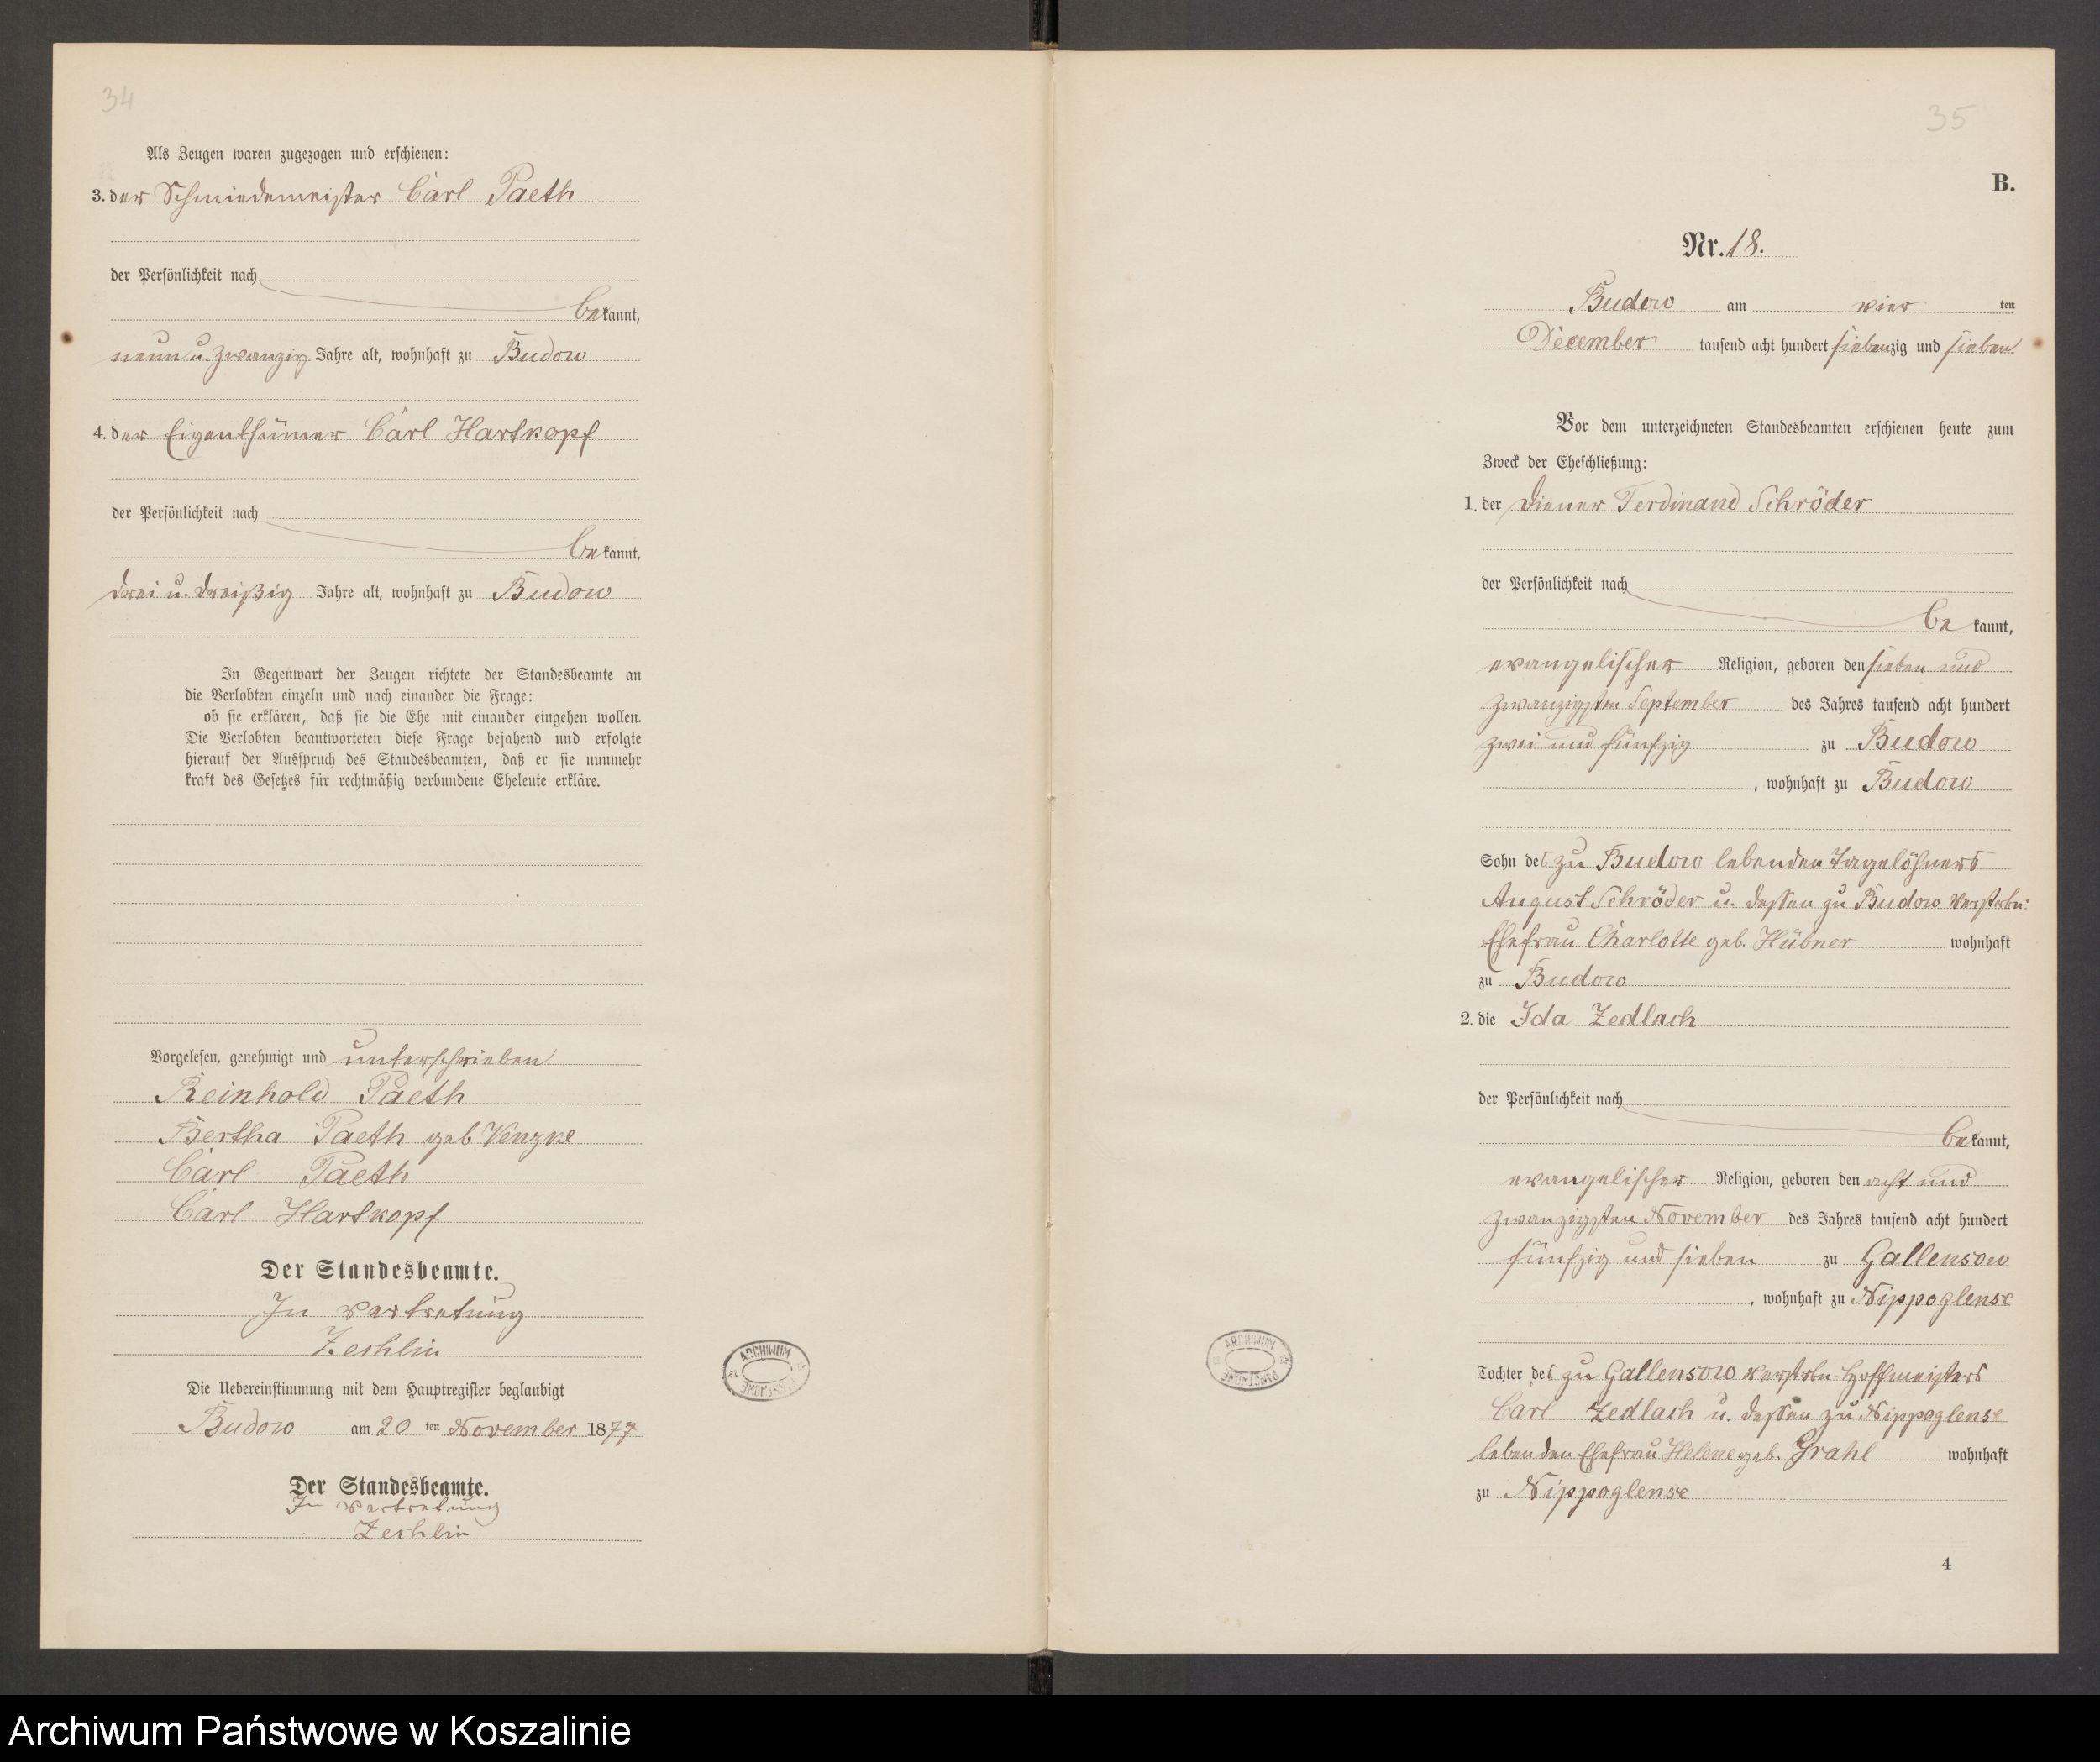 34
Als Zeugen waren zugezogen und erschienen:
3. der Schmiedemeister Carl Paeth
der Persönlichkeit nach
bekannt,
neun u. zwanzig Jahre alt, wohnhaft zu Budow
4. der Eigenthümer Carl Hartkopf
der Persönlichkeit nach
bekannt,
drei u. dreißig Jahre alt, wohnhaft zu Budow
In Gegenwart der Zeugen richtete der Standesbeamte an
die Verlobten einzeln und nach einander die Frage:
ob sie erklären, daß sie die Ehe mit einander eingehen wollen.
Die Verlobten beantworteten diese Frage bejahend und erfolgte
hierauf der Ausspruch des Standesbeamten, daß er sie nunmehr
kraft des Gesetzes für rechtmäßig verbundene Eheleute erkläre.
Vorgelesen, genehmigt und unterschrieben
Reinhold Paeth
Bertha Paeth geb. Venzke
Carl Paeth
Carl Hartkopf
Der Standesbeamte.
In Vertretung
Zechlin
Die Uebereinstimmung mit dem Hauptregister beglaubigt
Budow am 20 ten November 1877
Der Standesbeamte.
In Vertretung
Zechlin
ARCHIWUM
PAŃSTWOWE
35
B.
Nr. 18.
Budow am vier ten
December tausend acht hundert siebenzig und sieben
Vor dem unterzeichneten Standesbeamten erschienen heute zum
Zweck der Eheschließung:
1. der Diener Ferdinand Schröder
der Persönlichkeit nach
be kannt,
evangelischer Religion, geboren den sieben und
zwanzigsten September des Jahres tausend acht hundert
zwei und fünfzig zu Budow
, wohnhaft zu Budow
Sohn des zu Budow lebenden Tagelöhners
August Schröder u. dessen zu Budow verstorbn:
Ehefrau Charlotte geb. Hübner wohnhaft
zu Budow
2. die Ida Zedlach
der Persönlichkeit nach
bekannt,
evangelischer Religion, geboren den acht und
zwanzigsten November des Jahres tausend acht hundert
fünfzig und sieben zu Gallensow
, wohnhaft zu Nippoglense
Tochter des zu Gallensow verstrbn. Hoffmeisters
Carl Zedlach u. dessen zu Nippoglense
lebenden Ehefrau Helene geb. Grahl wohnhaft
zu Nippoglense
ARCHIWUM
PAŃSTWOWE
4
Archiwum Państwowe w Koszalinie